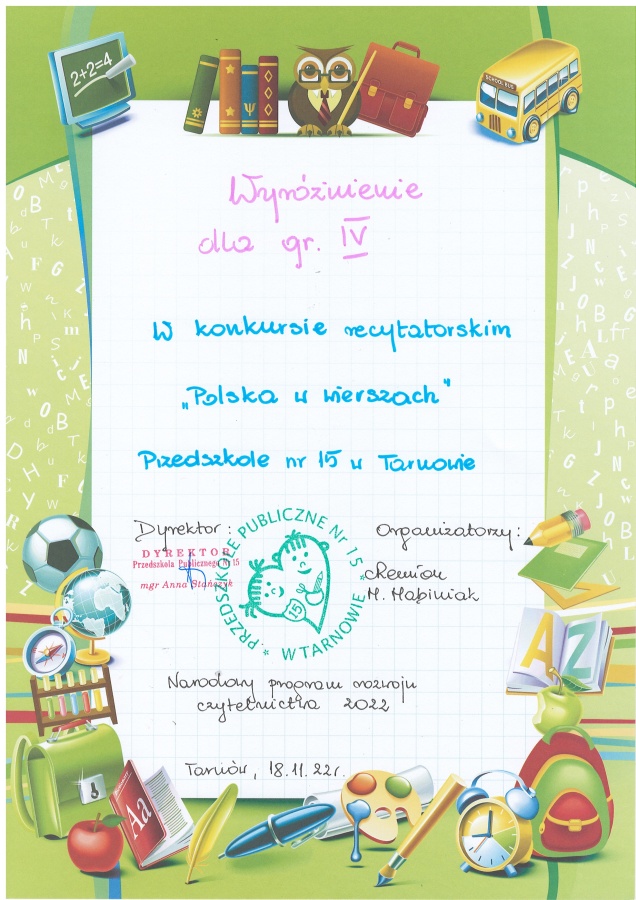 2+2=4
SCHOOL BUS
Wyróżnienie
dla gr. IV
w konkursie recytatorskim
„Polska w wierszach"
Przedszkole nr 15 w Tarnowie
Dyrektor:
Organizatorzy:
DYREKTOR
Przedszkola Publicznego Nr 15
mgr Anna Stańczyk
PRZEDSZKOLE PUBLICZNE Nr 15
* W TARNOWIE *
15
M.
Narodowy program rozwoju
czytelnictwa 2022
Tarnów, 18.11.22r.
A Z
Aa